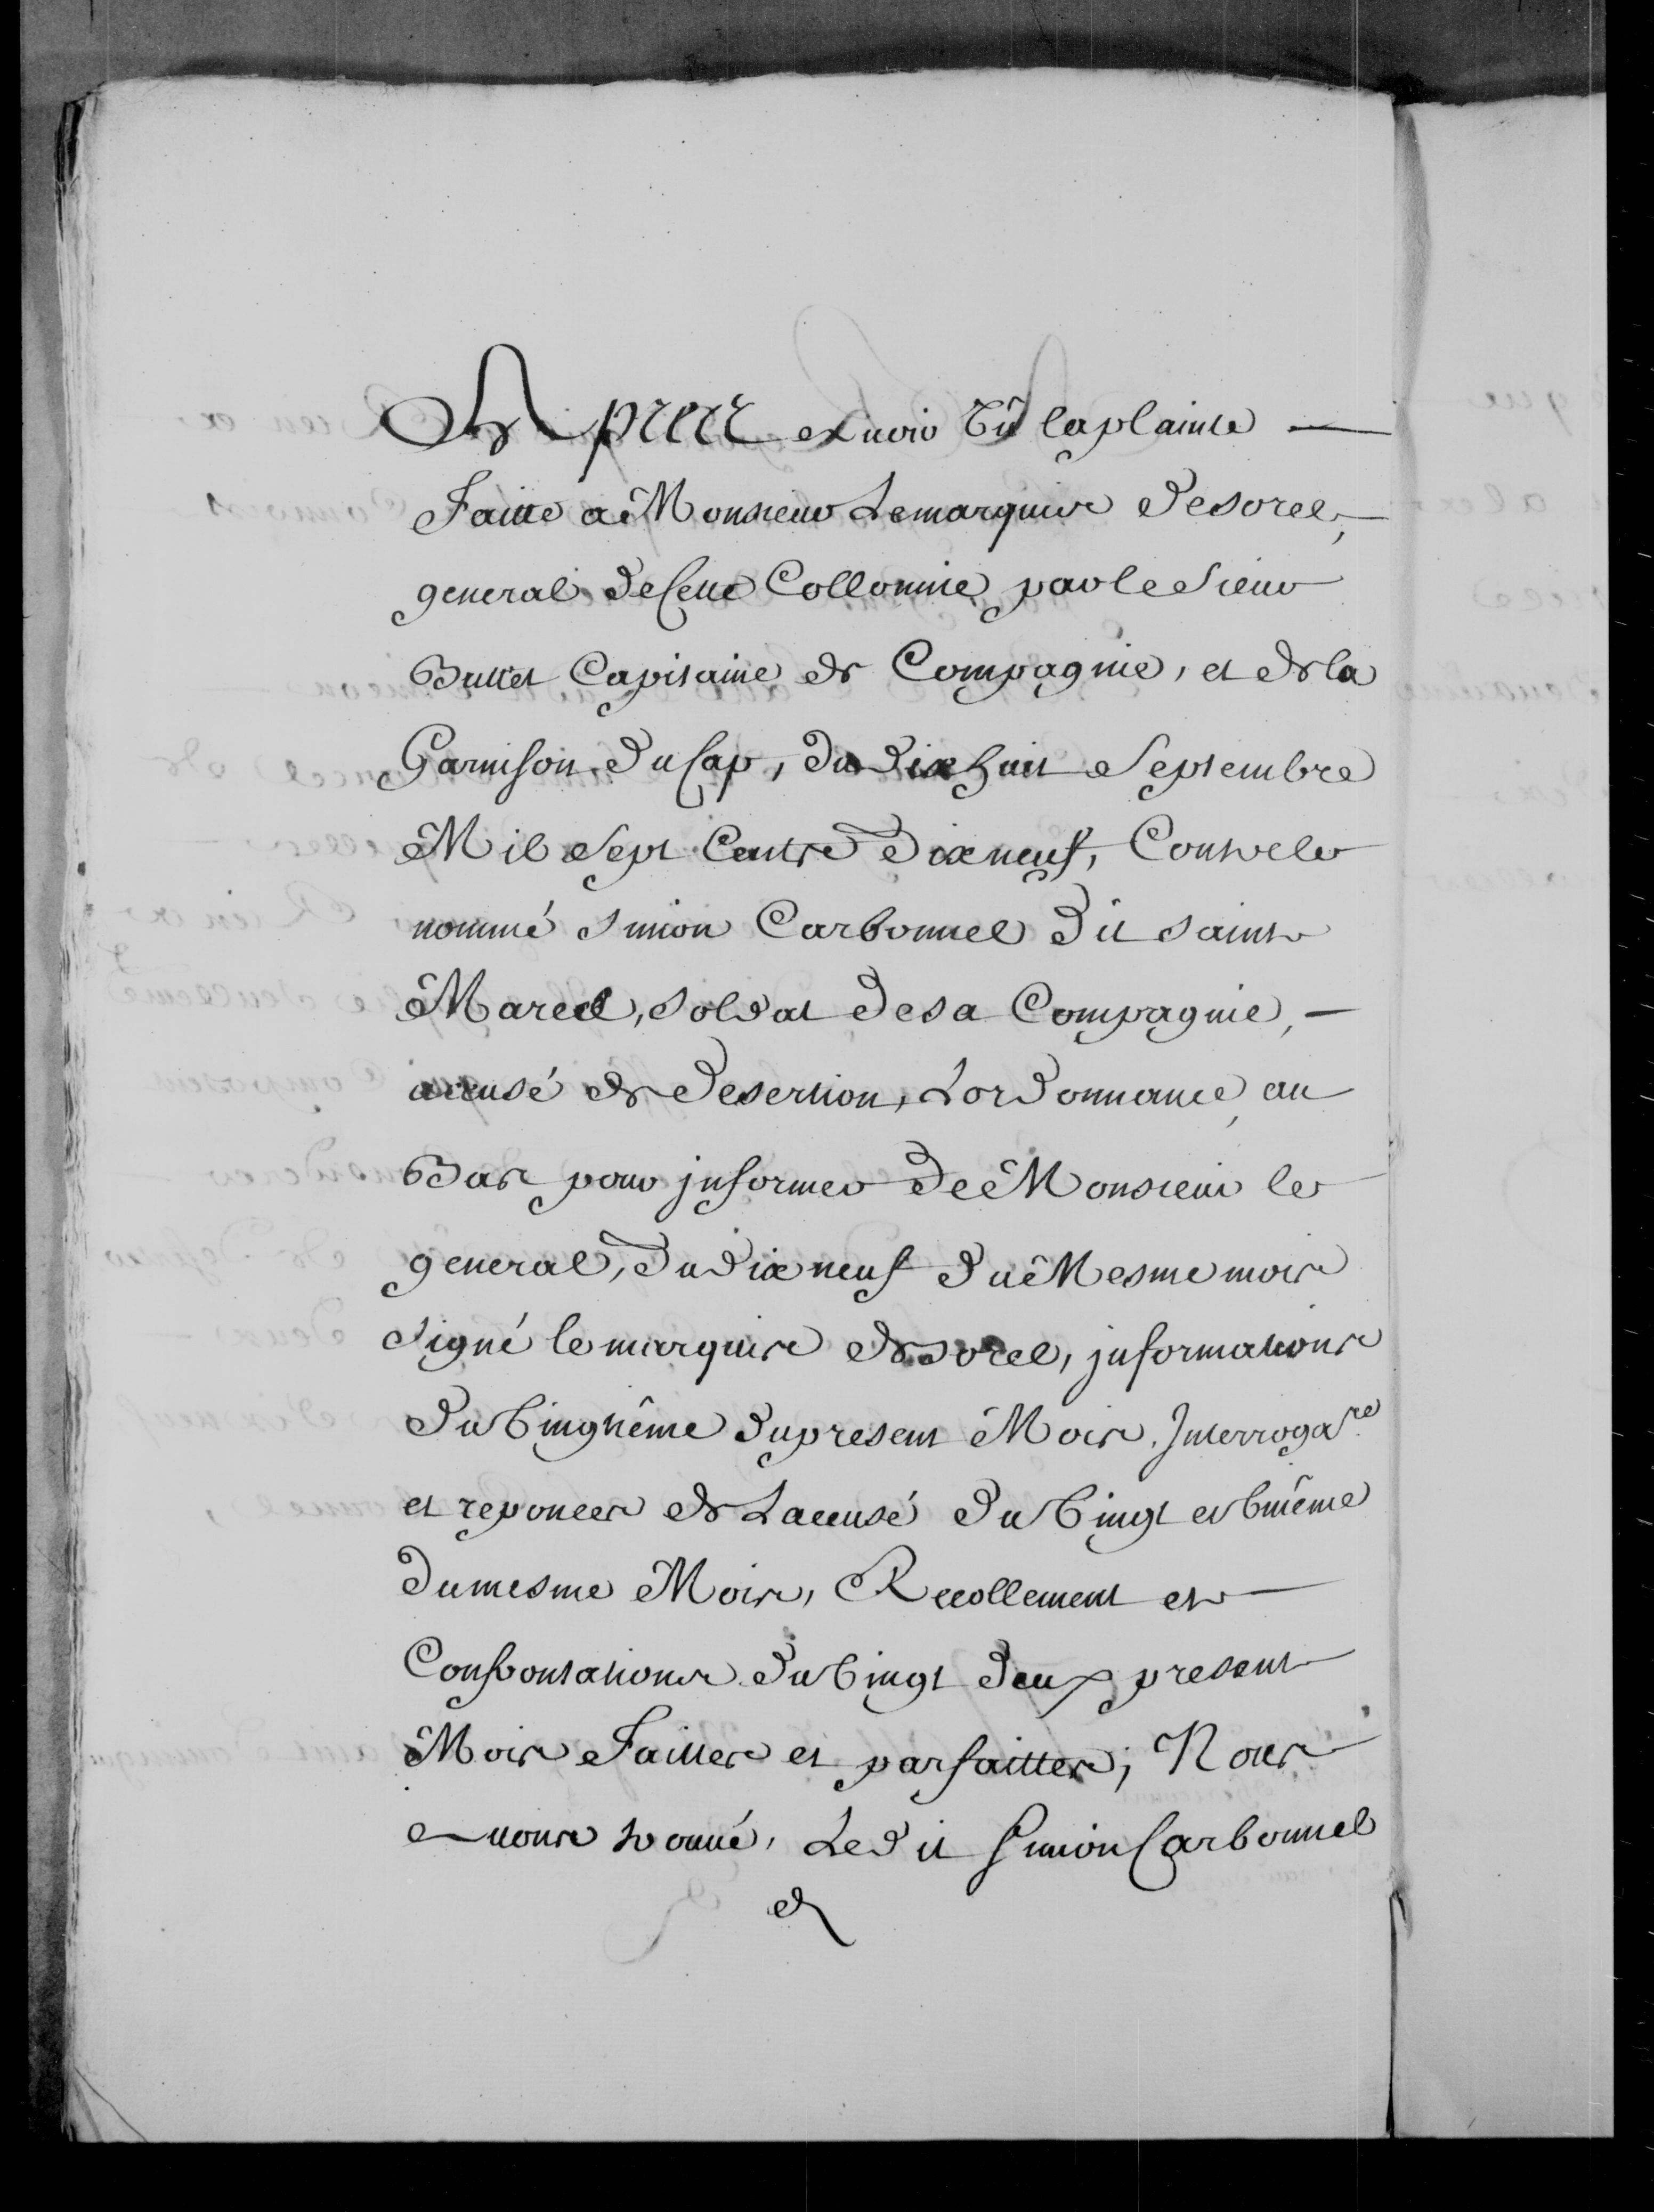 Apres avoir vû la plainte
Faitte a Monsieur Le marquis de sorel,
general de Cette Collonnie par le sieur
Buttet Capitaine de Compagnie, et de la
Garnison du Cap, du dix huit Septembre
Mil Sept Cents dix neuf, Contre le
nommé simon Carbonnel dit saint
Marcel, soldat de sa Compagnie,
accusé de desertion, L'ordonnance au
Bas pour jnformer de Monsieur le
general, du dix neuf du Mesme mois
signé le marquis de sorel, jnformations
du vingtiéme du present Mois, Interrogare
et reponces de L'accusé du vingt et vniéme
du mesme Mois, Recollement et
Confrontations du vingt deux present
Mois Faittes et parfaittes; Nous
avons trouvé, Le dit simon Carbonnel